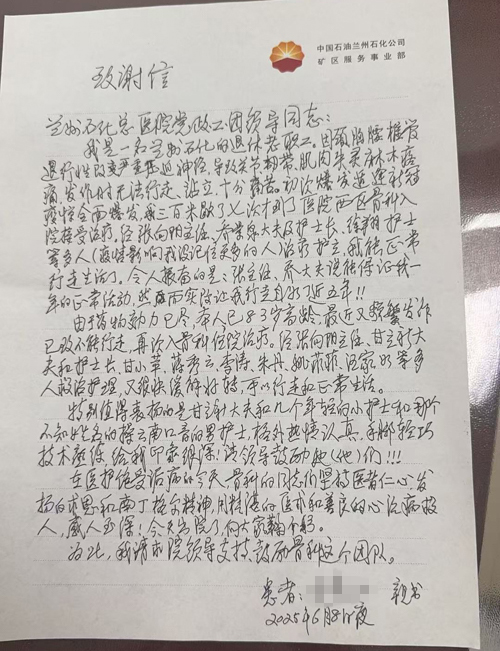 中国石油兰州石化公司
矿区服务事业部
致谢信
兰州石化总医院党政工团领导同志：
我是一名兰州石化的退休老职工。因颈胸腰椎骨
退行性改变严重压迫神经，导致关节韧带、肌肉失灵麻木疼
痛，发作时无法行走、站立，十分痛苦。初次爆发适逢新冠
疫情全面爆发，三百米歇了七次才到了医院西区骨科入
院接受治疗，经张向阳主任、乔大夫及护士长、徐翔护士
等多人（疫情影响我没记住更多的人）治疗护理，我能正常
行走生活了。令人振奋的是：张主任、乔大夫说能保证我一
年的正常活动，然而实际让我行走自如了近五年！！
由于药物效力已尽，本人已83岁高龄，最近又频繁发作
已致不能行走，再次入骨科住院治疗。经张向阳主任、甘大
夫和护士长、甘小草、蒋秀云、李涛、朱丹、姚菲菲、等多
人救治护理，又很快缓解好转，可以行走和正常生活。
特别值得表扬的是甘大夫和几个年轻的小护士和那个
不知姓名的操云南口音的男护士，格外热情认真，手脚轻巧
技术熟练给我印象很深！请领导鼓励她(他)们!!!
在医护饱受诟病的今天，骨科的同志们坚持医者仁心，发
扬白求恩和南丁格尔精神，用精湛的医术和善良的心治病救
人，感人至深！今天出院了，向大家鞠个躬。
为此，我请求院领导支持、鼓励骨科这个团队。
患者： 亲书
2025年6月8日夜